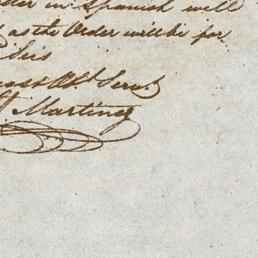 in Spanish well
as the Order will be for
his
Obt. Servt.
Martinez